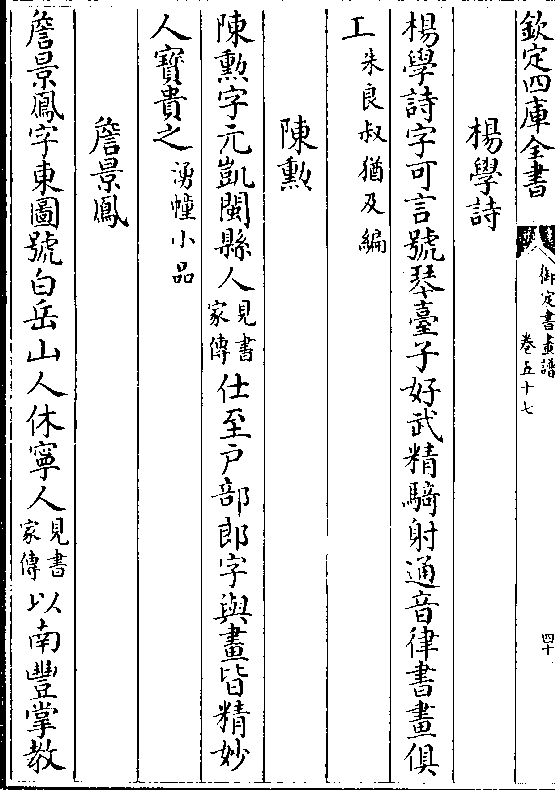 欽定四庫全書
御定書畫譜
卷五十七
四十
楊學詩
楊學詩字可言號琴臺子好武精騎射通音律書畫俱
工朱良叔猶及編
陳勲
陳勲字元凱閩縣人見書家傳仕至戸部郎字與畫皆精妙
人寶貴之湧幢小品
詹景鳳
詹景鳳字東圖號白岳山人休寧人見書家傳以南豐掌教